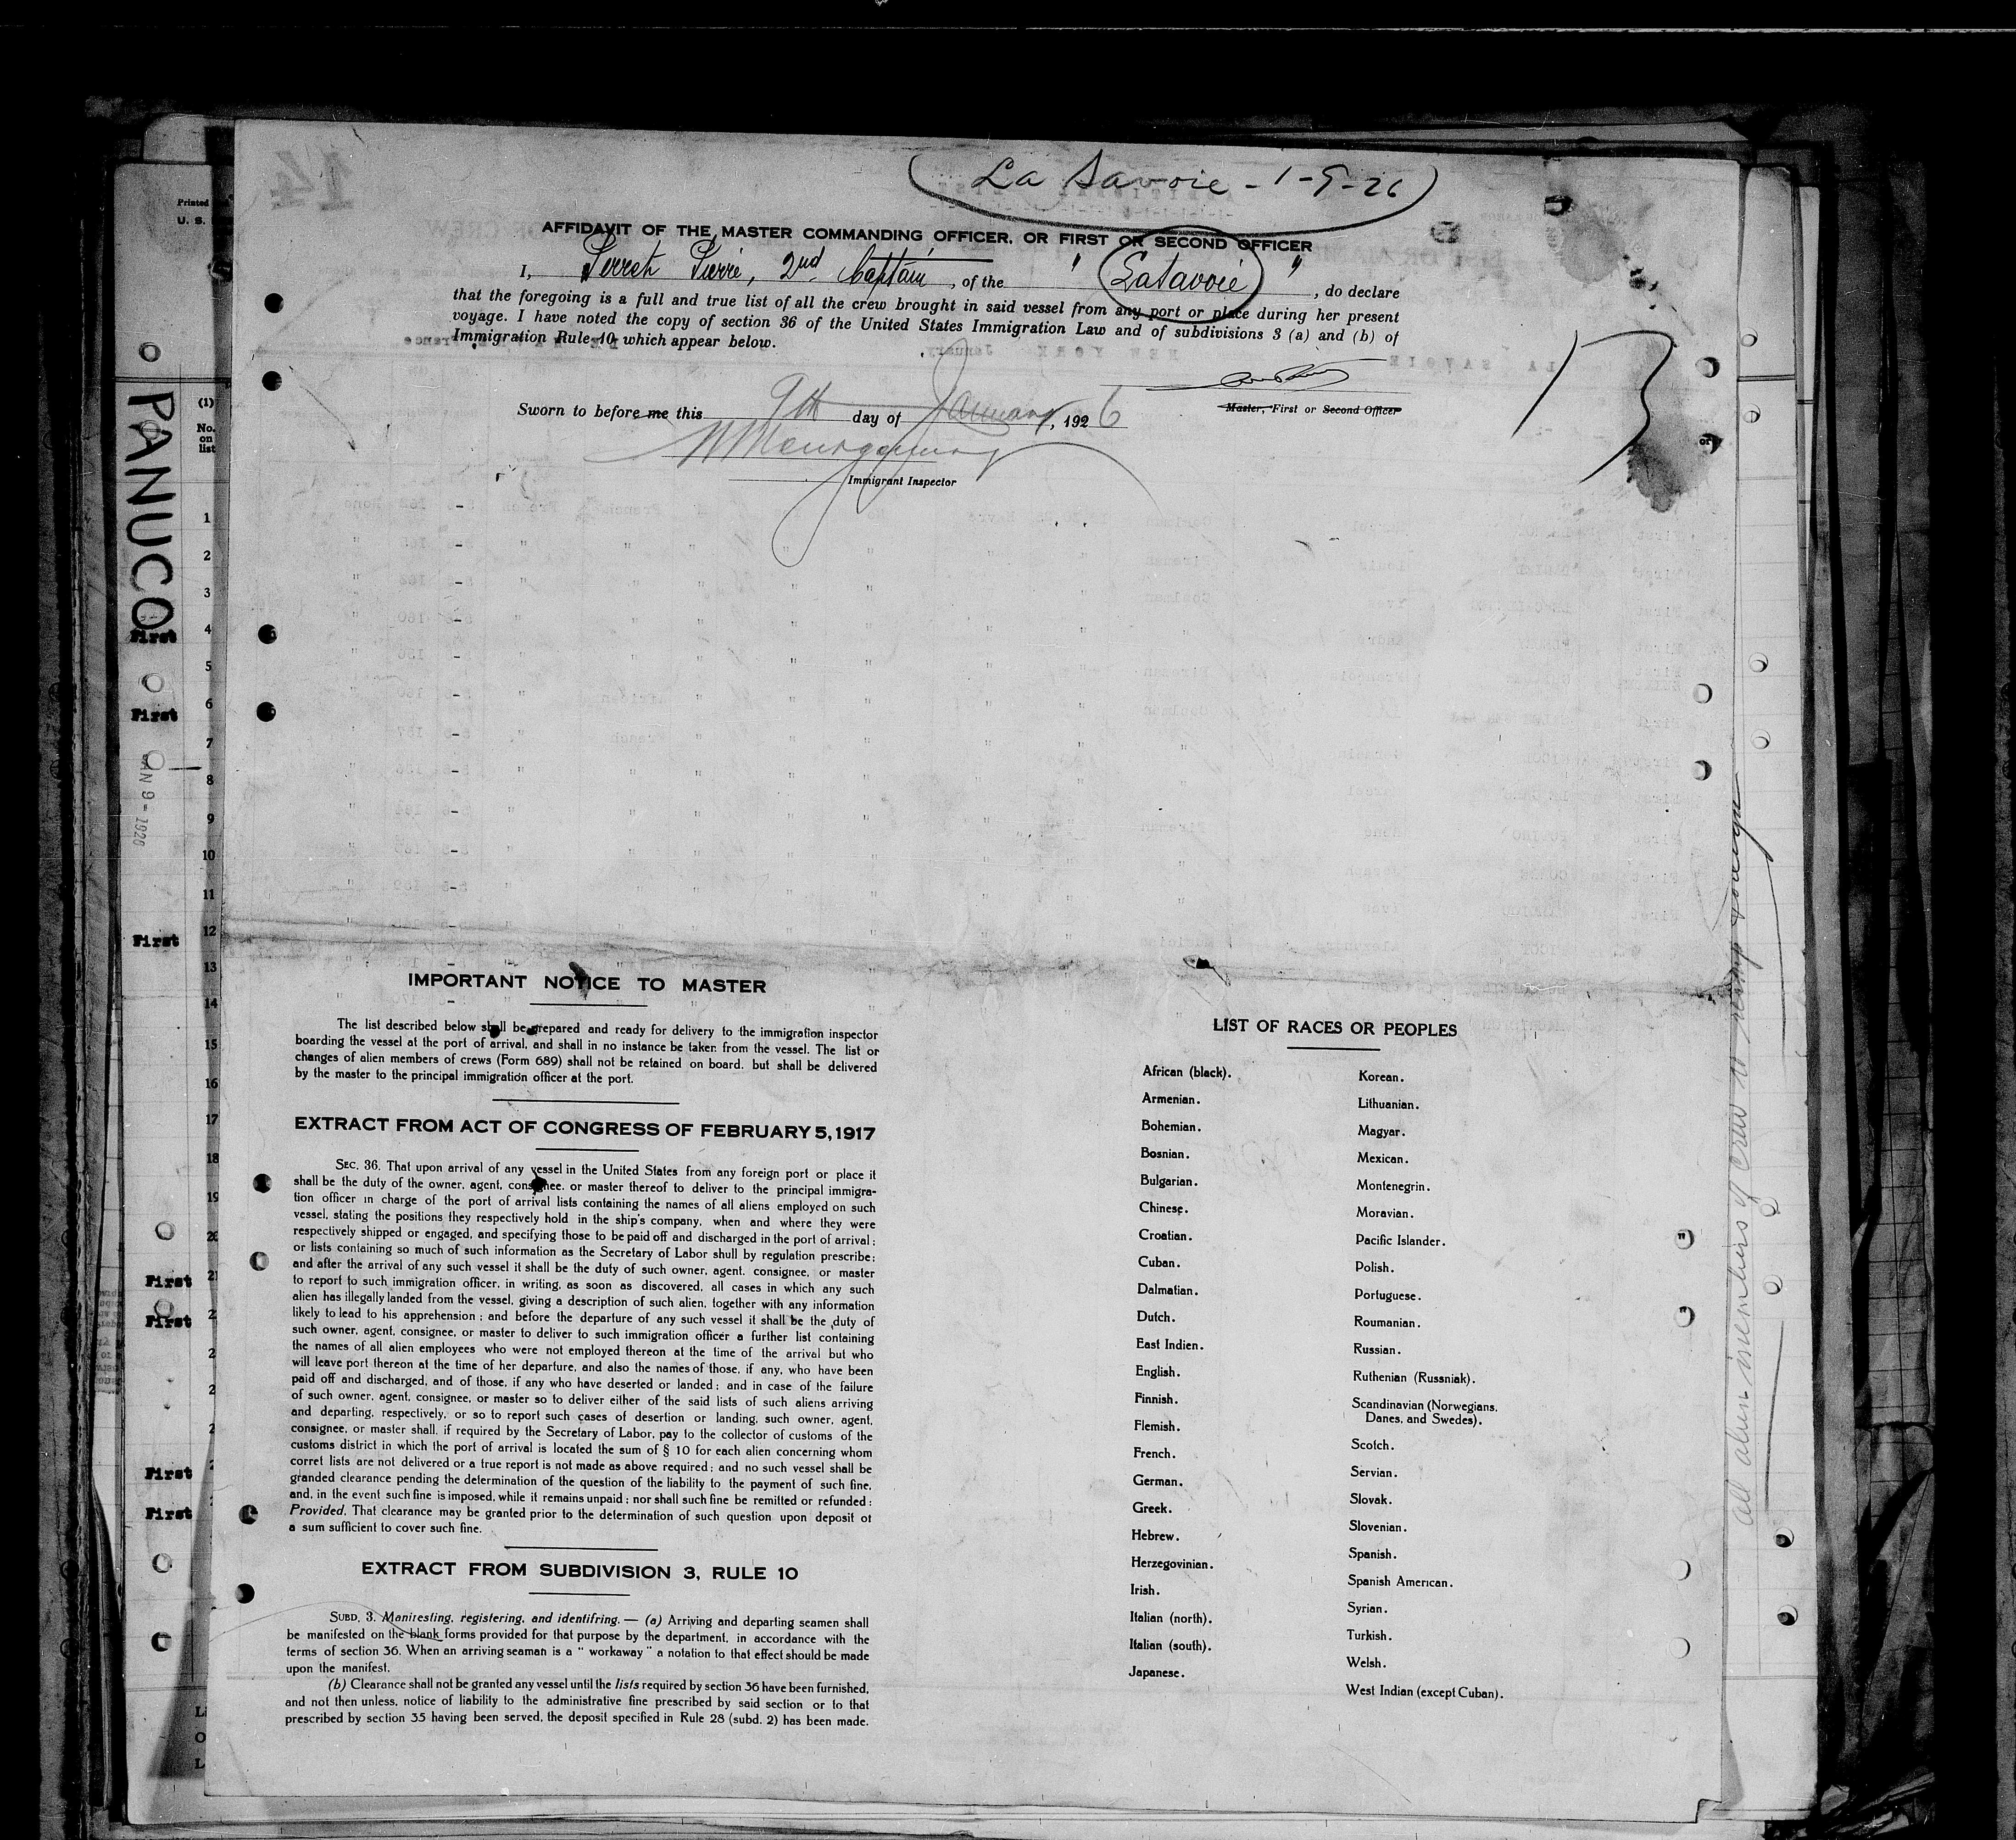 La Savoie - 1-9-26
AFFIDAVIT OF THE MASTER COMMANDING OFFICER, OR FIRST OR SECOND OFFICER
I, Pierre, 2nd Captain, of the " LaSavoie " , do declare
that the foregoing is a full and true list of all the crew brought in said vessel from any port or place during her present
voyage. I have noted the copy of section 36 of the United States Immigration Law and of subdivisions 3 (a) and (b) of
Immigration Rule 10, which appear below.
13
Master, First or Second Officer
Sworn to before me this 9th day of January, 1926
Immigrant Inspector
IMPORTANT NOTICE TO MASTER
The list described below shall be prepared and ready for delivery to the immigration inspector
boarding the vessel at the port of arrival, and shall in no instance be taken from the vessel. The list or
changes of alien members of crews (Form 689) shall not be retained on board. but shall be delivered
by the master to the principal immigration officer at the port.
EXTRACT FROM ACT OF CONGRESS OF FEBRUARY 5, 1917
SEC. 36. That upon arrival of any vessel in the United States from any foreign port or place it
shall be the duty of the owner, agent, consignee. or master thereof to deliver to the principal immigra-
tion officer in charge of the port of arrival lists containing the names of all aliens employed on such
vessel, stating the positions they respectively hold in the ship's company, when and where they were
respectively shipped or engaged, and specifying those to be paid off and discharged in the port of arrival;
or lists containing so much of such information as the Secretary of Labor shull by regulation prescribe;
and after the arrival of any such vessel it shall be the duty of such owner, agent. consignee, or master
to report to such immigration officer, in writing, as soon as discovered, all cases in which any such
alien has illegally landed from the vessel, giving a description of such alien, together with any information
likely to lead to his apprehension ; and before the departure of any such vessel it shall be the duty of
such owner, agent, consignee, or master to deliver to such immigration officer a further list containing
the names of all alien employees who were not employed thereon at the time of the arrival but who
will leave port thereon at the time of her departure, and also the names of those, if any, who have been
paid off and discharged, and of those, if any who have deserted or landed ; and in case of the failure
of such owner, agent, consignee, or master so to deliver either of the said lists of such aliens arriving
and departing, respectively, or so to report such cases of desertion or landing, such owner, agent,
consignee, or master shall, if required by the Secretary of Labor, pay to the collector of customs of the
customs district in which the port of arrival is located the sum of § 10 for each alien concerning whom
corret lists are not delivered or a true report is not made as above required ; and no such vessel shall be
granded clearance pending the determination of the question of the liability to the payment of such fine,
and, in the event such fine is imposed, while it remains unpaid ; nor shall such fine be remitted or refunded :
Provided, That clearance may be granted prior to the determination of such question upon deposit ot
a sum sufficient to cover such fine.
EXTRACT FROM SUBDIVISION 3, RULE 10
SUBD. 3. Manifesting, registering, and identifring. — (a) Arriving and departing seamen shall
be manifested on the blank forms provided for that purpose by the department, in accordance with the
terms of section 36. When an arriving seaman is a " workaway " a notation to that effect should be made
upon the manifest.
(b) Clearance shall not be granted any vessel until the lists required by section 36 have been furnished,
and not then unless, notice of liability to the administrative fine prescribed by said section or to that
prescribed by section 35 having been served, the deposit specified in Rule 28 (subd. 2) has been made.
LIST OF RACES OR PEOPLES
African (black).
Armenian.
Bohemian.
Bosnian.
Bulgarian.
Chinese.
Croatian.
Cuban.
Dalmatian.
Dutch.
East Indien.
English.
Finnish.
Flemish.
French.
German.
Greek.
Hebrew.
Herzegovinian.
Irish.
Italian (north).
Italian (south).
Japanese.
Korean.
Lithuanian.
Magyar.
Mexican.
Montenegrin.
Moravian.
Pacific Islander.
Polish.
Portuguese.
Roumanian.
Russian.
Ruthenian (Russniak).
Scandinavian (Norwegians,
Danes, and Swedes).
Scotch.
Servian.
Slovak.
Slovenian.
Spanish.
Spanish American.
Syrian.
Turkish.
Welsh.
West Indian (except Cuban).
Printed
U. S.
PANUCO
JAN 9 - 1926
(1)
No.
on
list
1
2
3
First 4
5
First 6
7
8
9
10
11
First 12
13
14
15
16
17
18
19
20
First 21
First
First
First
all alien members of crew to reship foreign